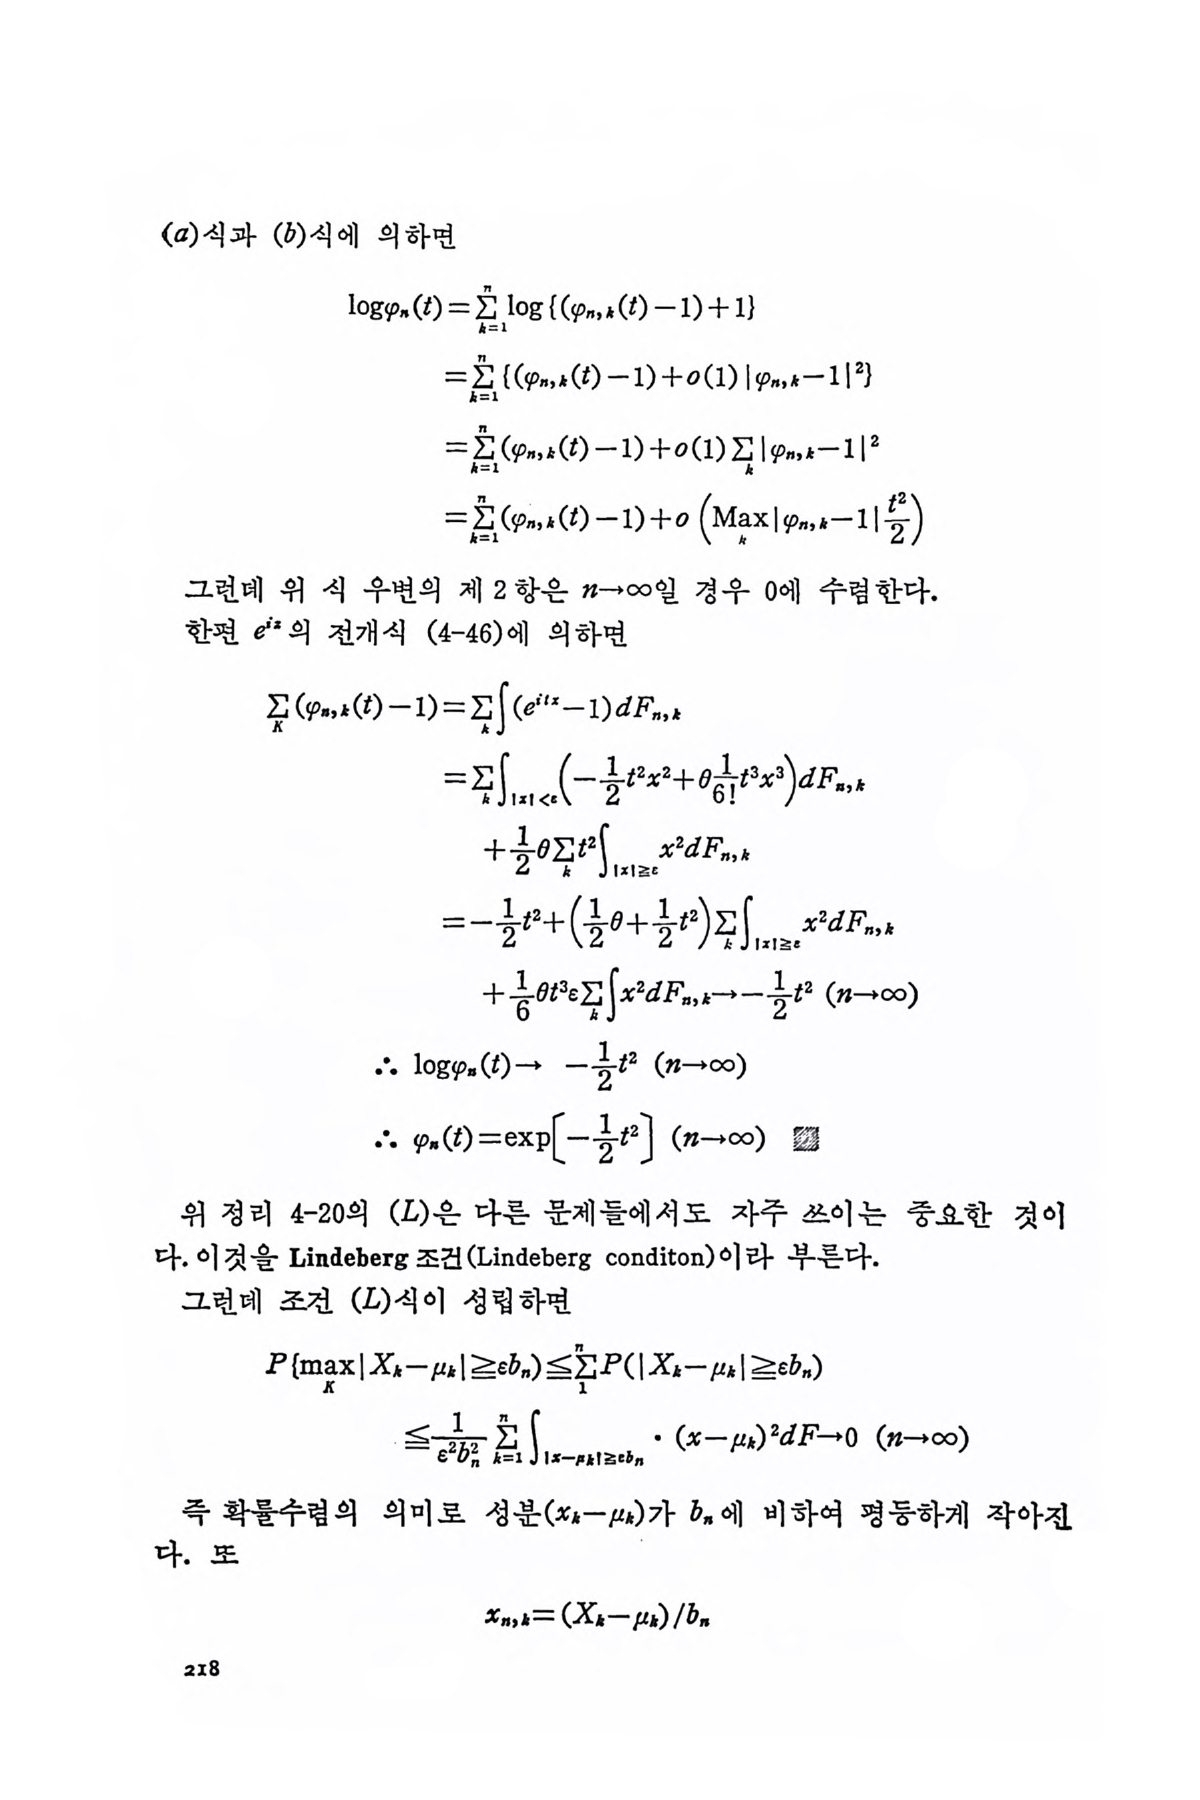 (a)식과 (b)식에 의하면
logφₙ(t)=∑_{k=1}^{n} log{(φₙ,ₖ(t)−1)+1}
=∑_{k=1}^{n}{(φₙ,ₖ(t)−1)+o(1)|φₙ,ₖ−1|²}
=∑_{k=1}^{n}(φₙ,ₖ(t)−1)+o(1)∑_{k}|φₙ,ₖ−1|²
=∑_{k=1}^{n}(φₙ,ₖ(t)−1)+o(Max_{k}|φₙ,ₖ−1|\frac{t²}{2})
그런데 위 식 우변의 제 2 항은 n→∞일 경우 0에 수렴한다.
한편 e^{iz}의 전개식 (4-46)에 의하면
∑_{K}(φₙ,ₖ(t)−1)=∑_{k}∫(e^{itx}−1)dFₙ,ₖ
=∑_{k}∫_{|x|<ε}(−\frac{1}{2}t²x²+θ\frac{1}{6!}t³x³)dFₙ,ₖ
+\frac{1}{2}θ∑_{k}t²∫_{|x|≧ε}x²dFₙ,ₖ
=−\frac{1}{2}t²+(\frac{1}{2}θ+\frac{1}{2}t²)∑_{k}∫_{|x|≧ε}x²dFₙ,ₖ
+\frac{1}{6}θt³ε∑_{k}∫x²dFₙ,ₖ→−\frac{1}{2}t² (n→∞)
∴ logφₙ(t)→ −\frac{1}{2}t² (n→∞)
∴ φₙ(t)=exp[−\frac{1}{2}t²] (n→∞)
위 정리 4-20의 (L)은 다른 문제들에서도 자주 쓰이는 중요한 것이
다. 이것을 Lindeberg 조건(Lindeberg conditon)이라 부른다.
그런데 조건 (L)식이 성립하면
P{max_{K}|Xₖ−μₖ|≧εbₙ)≦∑_{1}^{n}P(|Xₖ−μₖ|≧εbₙ)
≦\frac{1}{ε²bₙ²}∑_{k=1}^{n}∫_{|x−μk|≧εbₙ}·(x−μₖ)²dF→0 (n→∞)
즉 확률수렴의 의미로 성분(xₖ−μₖ)가 bₙ에 비하여 평등하게 작아진
다. 또
xₙ,ₖ=(Xₖ−μₖ)/bₙ
218